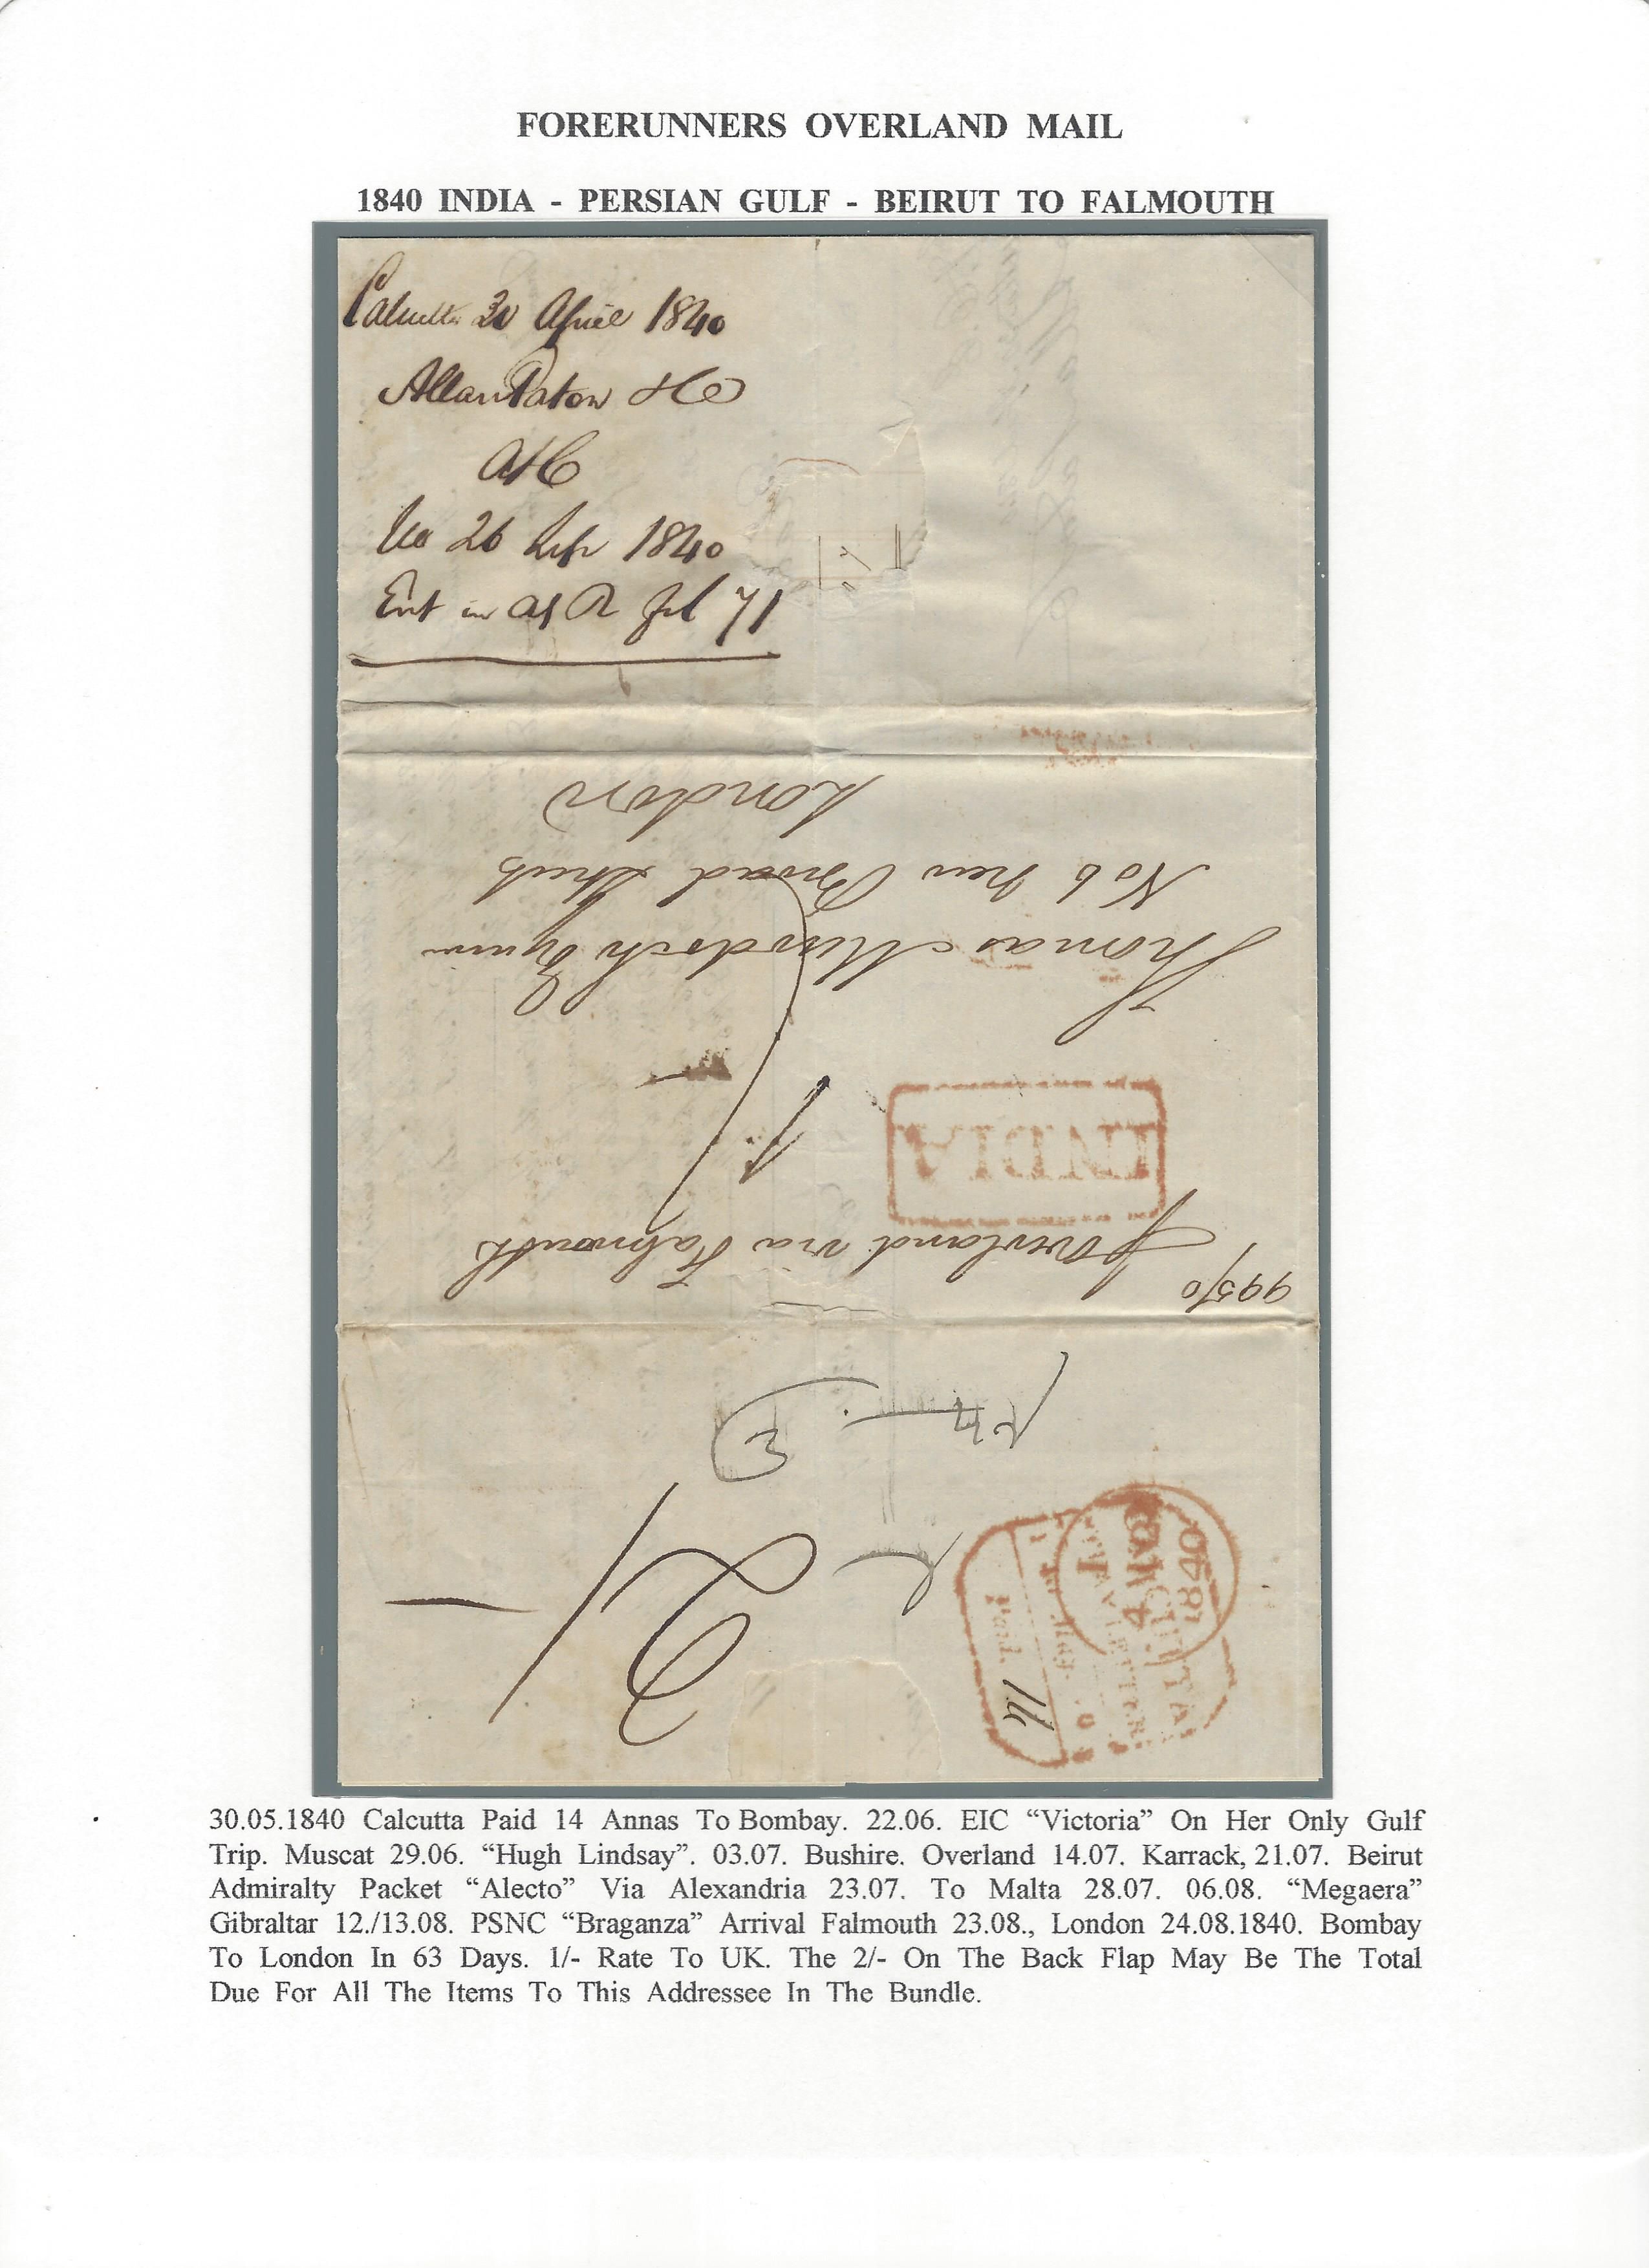 FORERUNNERS OVERLAND MAIL
1840 INDIA - PERSIAN GULF - BEIRUT TO FALMOUTH
Calcutta 30 April 1840
Allan Paton & Co
26 1840
Ent in 71
London
No 6 New Broad Street
Thomas Murdoch Esquire
INDIA
Overland via Falmouth
2/
CALCUTTA
Paid. 14
1840
30.05.1840 Calcutta Paid 14 Annas To Bombay. 22.06. EIC “Victoria” On Her Only Gulf
Trip. Muscat 29.06. “Hugh Lindsay”. 03.07. Bushire. Overland 14.07. Karrack, 21.07. Beirut
Admiralty Packet “Alecto” Via Alexandria 23.07. To Malta 28.07. 06.08. “Megaera”
Gibraltar 12./13.08. PSNC “Braganza” Arrival Falmouth 23.08., London 24.08.1840. Bombay
To London In 63 Days. 1/- Rate To UK. The 2/- On The Back Flap May Be The Total
Due For All The Items To This Addressee In The Bundle.